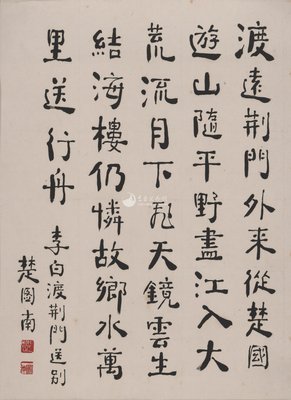 渡遠荊門外來從楚國
遊山隨平野盡江入大
荒流月下飛天鏡雲生
結海樓仍憐故鄉水萬
里送行舟 李白渡荊門送別
楚圖南